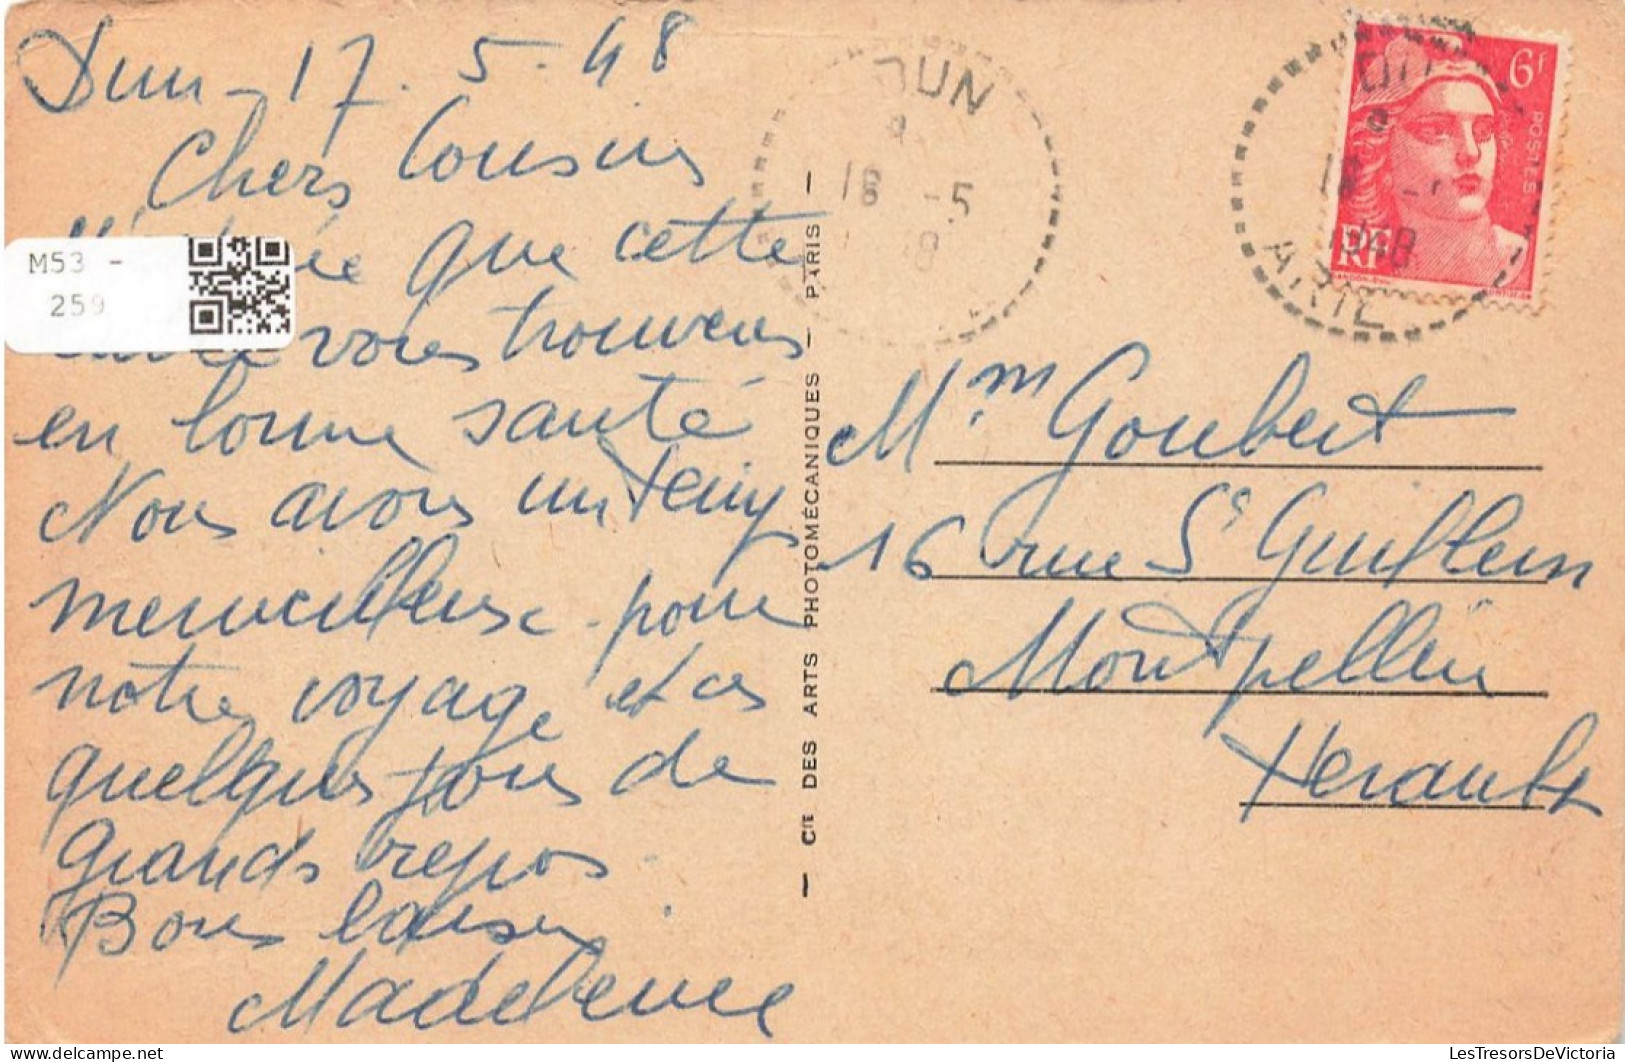 Dun - 17. 5. 48
Chers Cousins
que cette
vous trouvera
en bonne santé
Nous avons un temps
merveilleux pour
notre voyage et ces
quelques jours de
grands repos.
Bons baisers
Madeleine
M53 -
259
— Cie DES ARTS PHOTOMÉCANIQUES — PARIS —
DUN
18 -5
6F
POSTES
RF
18
1948
ARIÈGE
Mm Goubert
16 rue St Guilhem
Montpellier
Herault
LesTresorsDeVictoria
www.delcampe.net